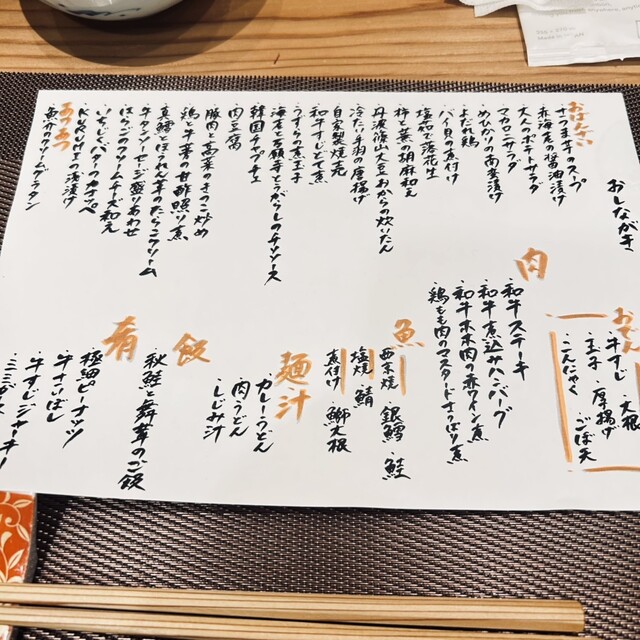 おしながき
おばんざい
・さつま芋のスープ
・赤海老の醤油漬け
・大人のポテトサラダ
・マカロニサラダ
・めひかりの南蛮漬け
・よだれ鶏
・バイ貝の煮付け
・塩茹で落花生
・柿と蕪の胡麻和え
・丹波篠山大豆おからの炊いたん
・冷たい手羽の唐揚げ
・自家製焼売
・和牛すじとて煮
・うずらの煮玉子
・海老と万願寺とうがらしのチリソース
・韓国チャプチェ
・肉豆腐
・豚肉と高菜のきのこ炒め
・鶏と牛蒡の甘酢照り煮
・真鱈とほうれん草のたらこクリーム
・牛タンソーセージ盛りあわせ
・はらこのクリームチーズ和え
・いちじくバターのカナッペ
・魚介のクリームグラタン
おでん
・牛すじ ・大根
・玉子 ・厚揚げ
・こんにゃく ・ごぼ天
肉
・和牛ステーキ
・和牛煮込みハンバーグ
・和牛ホホ肉の赤ワイン煮
・鶏もも肉のマスタードさっぱり煮
魚
西京焼 ・銀鱈 ・鮭
塩焼 ・鯖
煮付け ・鰤大根
麺
汁
・カレーうどん
・肉うどん
・しじみ汁
飯
・秋鮭と舞茸のご飯
肴
・極細ピーナッツ
・牛すじジャーキー